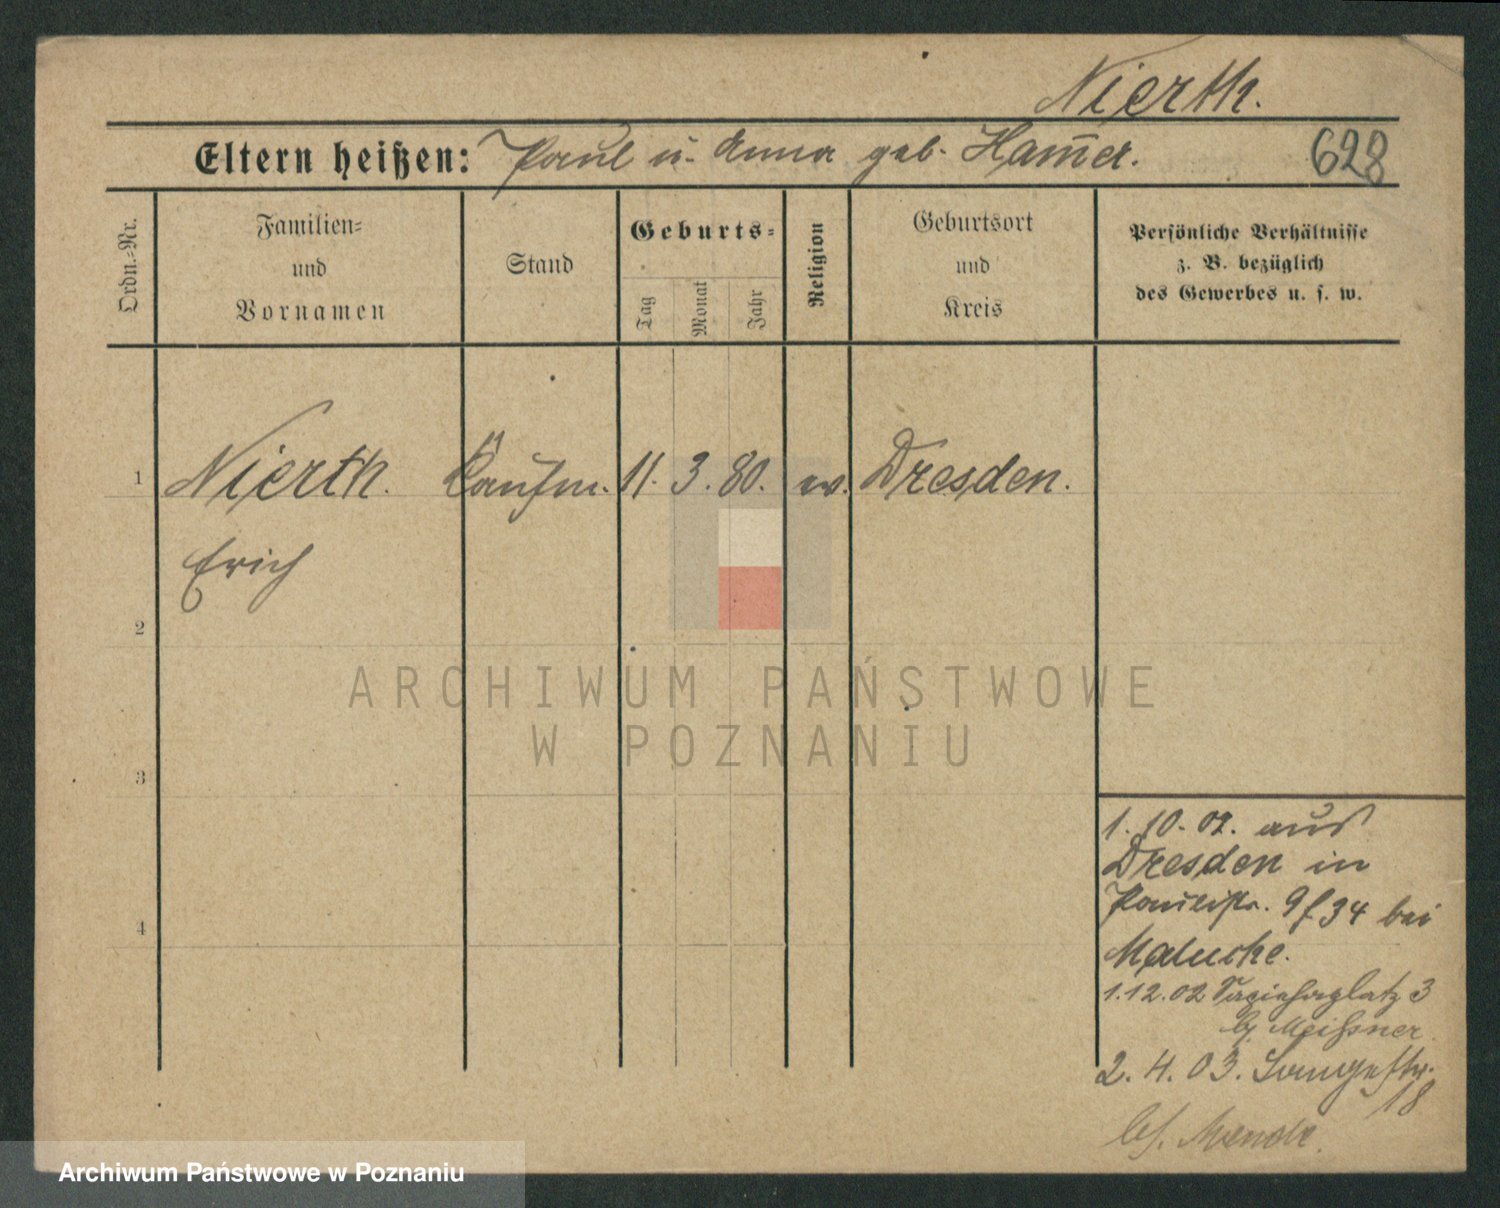 Nierth.
Eltern heißen: Paul u. Anna geb. Ham̄er.
628
Ordn.-Nr.
Familien-
und
Vornamen
Stand
Geburts-
Tag
Monat
Jahr
Religion
Geburtsort
und
Kreis
Persönliche Verhältnisse
z. B. bezüglich
des Gewerbes u. s. w.
1 Nierth. Kaufm. 11. 3. 80. ev. Dresden.
Erich
2
3
4
1. 10. 02. aus
Dresden in
Paulistr. 9 34 bei
1.12.02 3
bj. Meißner
2. 4. 03. Langestr.
18
ARCHIWUM PAŃSTWOWE
W POZNANIU
Archiwum Państwowe w Poznaniu